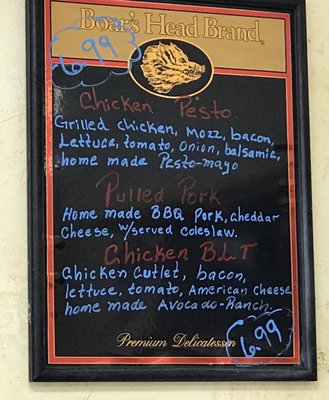 Boar's Head Brand
6.99
Chicken Pesto.
Grilled chicken, Mozz, bacon,
Lettuce, tomato, onion, balsamic,
home made Pesto-mayo
Pulled Pork
Home made BBQ Pork, Cheddar
Cheese, w/served coleslaw.
Chicken BLT
Chicken Cutlet, bacon,
lettuce, tomato, American Cheese
home made Avocado-Ranch.
Premium Delicatessen
6.99